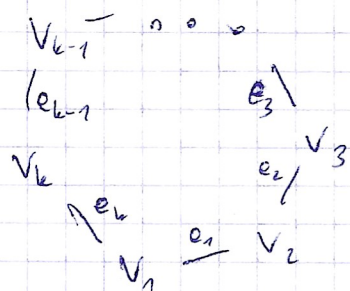 V_{k-1} — . . .
e_{k-1} e_3
V_3
V_k e_2
e_k
e_1 V_2
V_1